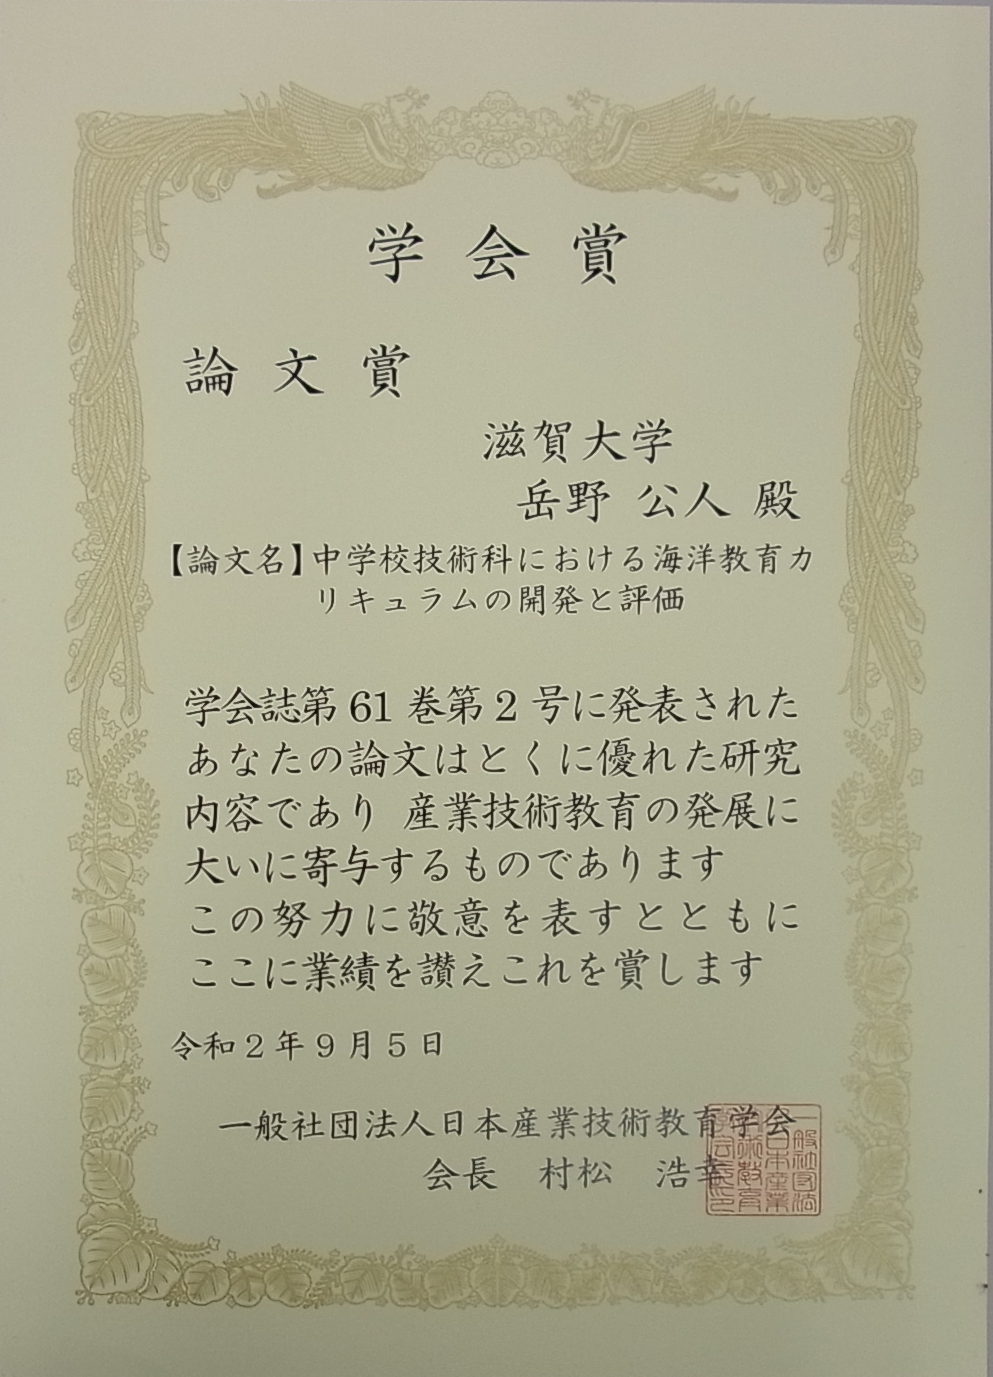 学会賞
論文賞
滋賀大学
岳野 公人 殿
【論文名】中学校技術科における海洋教育カ
リキュラムの開発と評価
学会誌第61巻第2号に発表された
あなたの論文はとくに優れた研究
内容であり 産業技術教育の発展に
大いに寄与するものであります
この努力に敬意を表すとともに
ここに業績を讃えこれを賞します
令和2年9月5日
一般社団法人日本産業技術教育学会
会長 村松 浩幸
一般社団法
人日本産業
技術教育
学会長之印